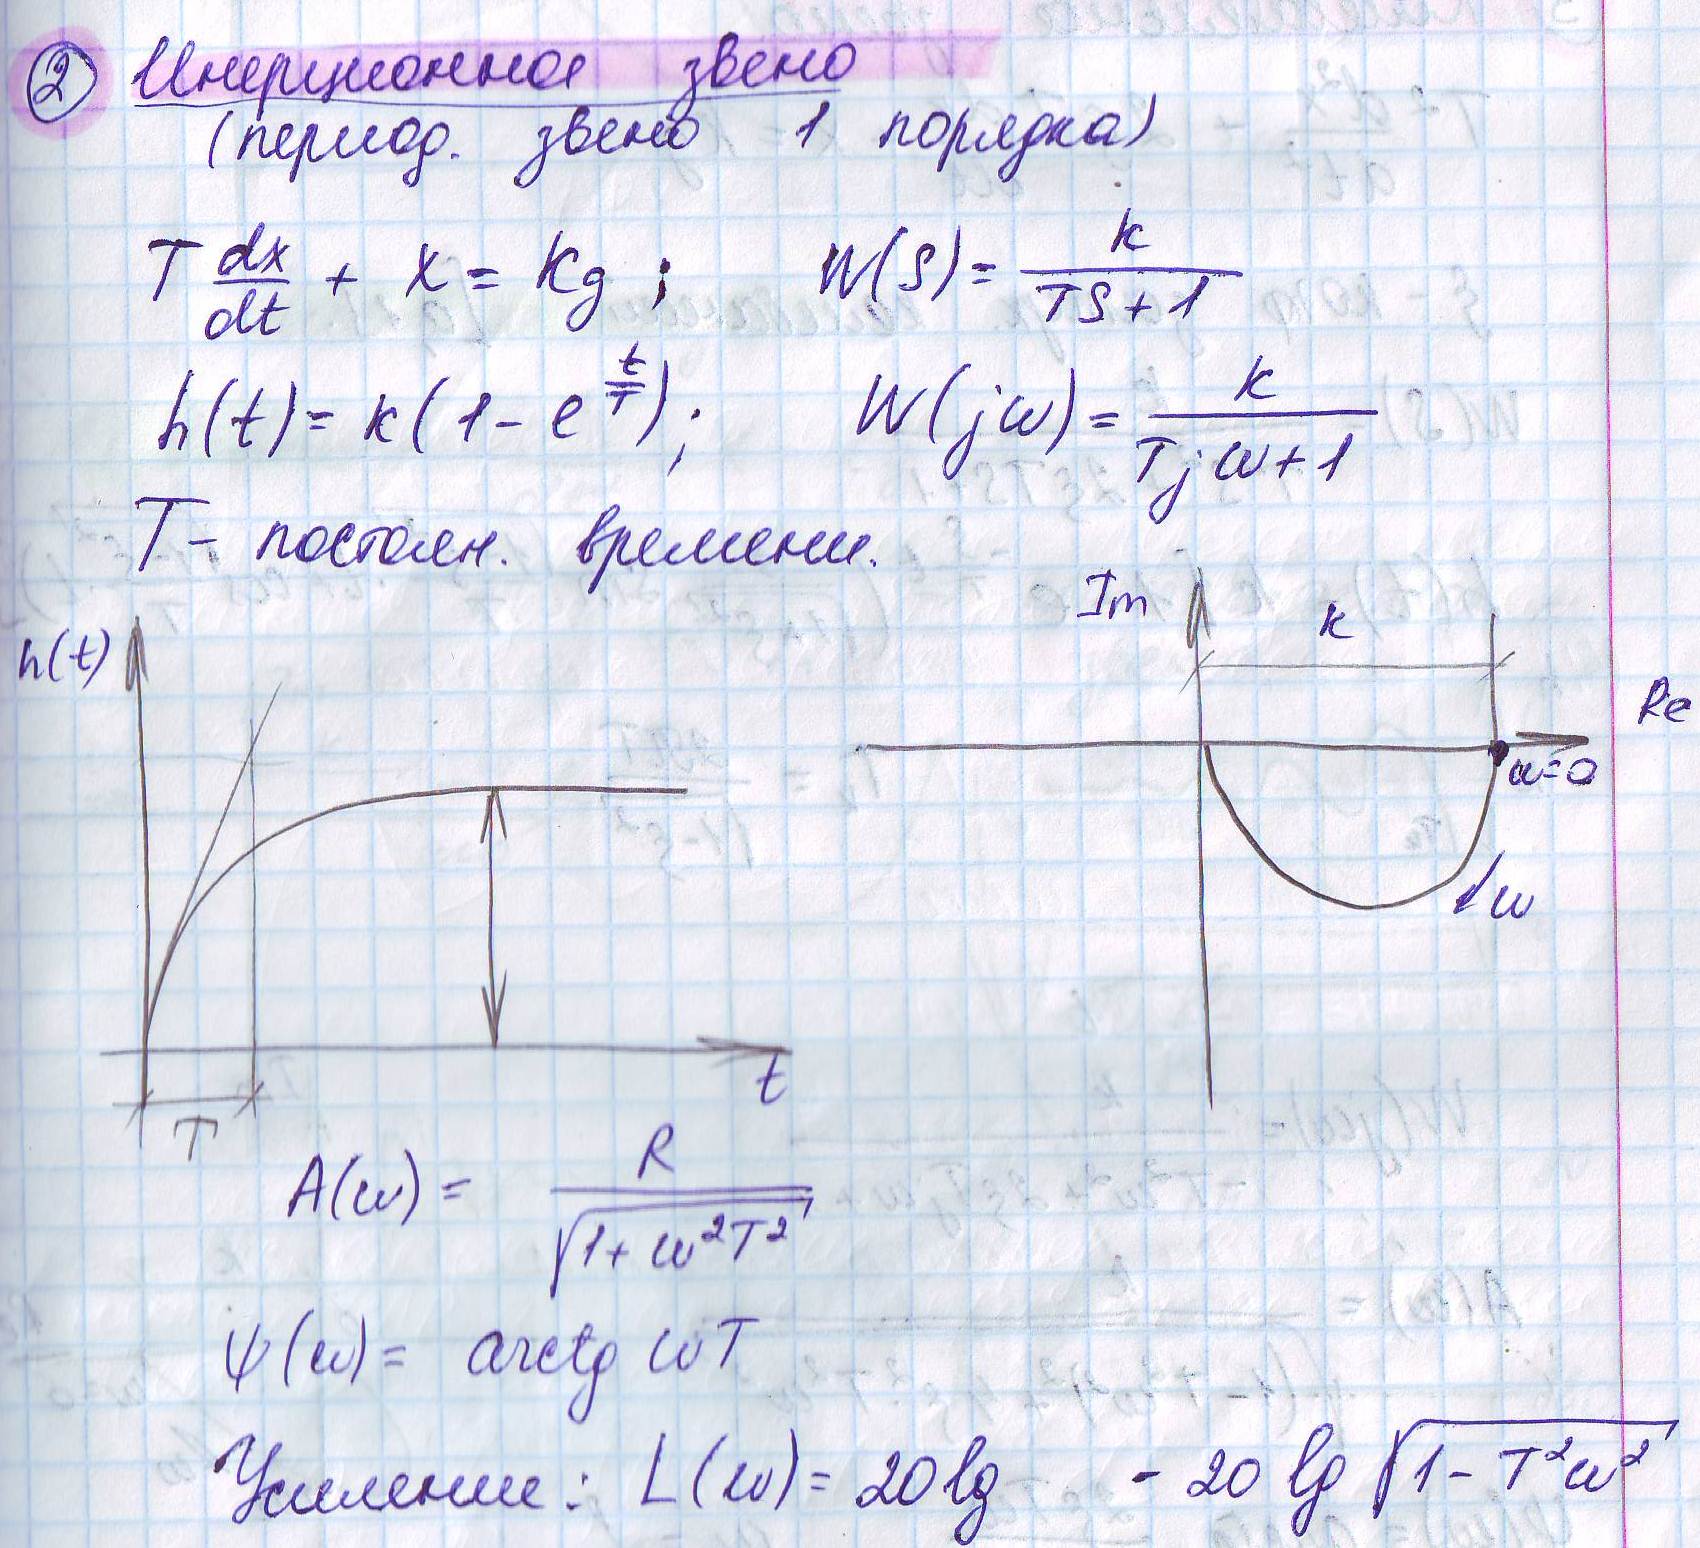 ② Инерционное звено
(период. звено 1 порядка)
T dx/dt + x = Kg ; W(S) = k/(TS+1)
h(t) = k(1 - e^(t/T)); W(jω) = k/(Tjω+1)
T - постоян. времени.
h(t)
T
t
Im
k
Re
ω=0
ω
A(ω) = R/√(1+ω²T²)
ψ(ω) = arctg ωT
Усиление: L(ω) = 20lg - 20 lg √(1-T²ω²)